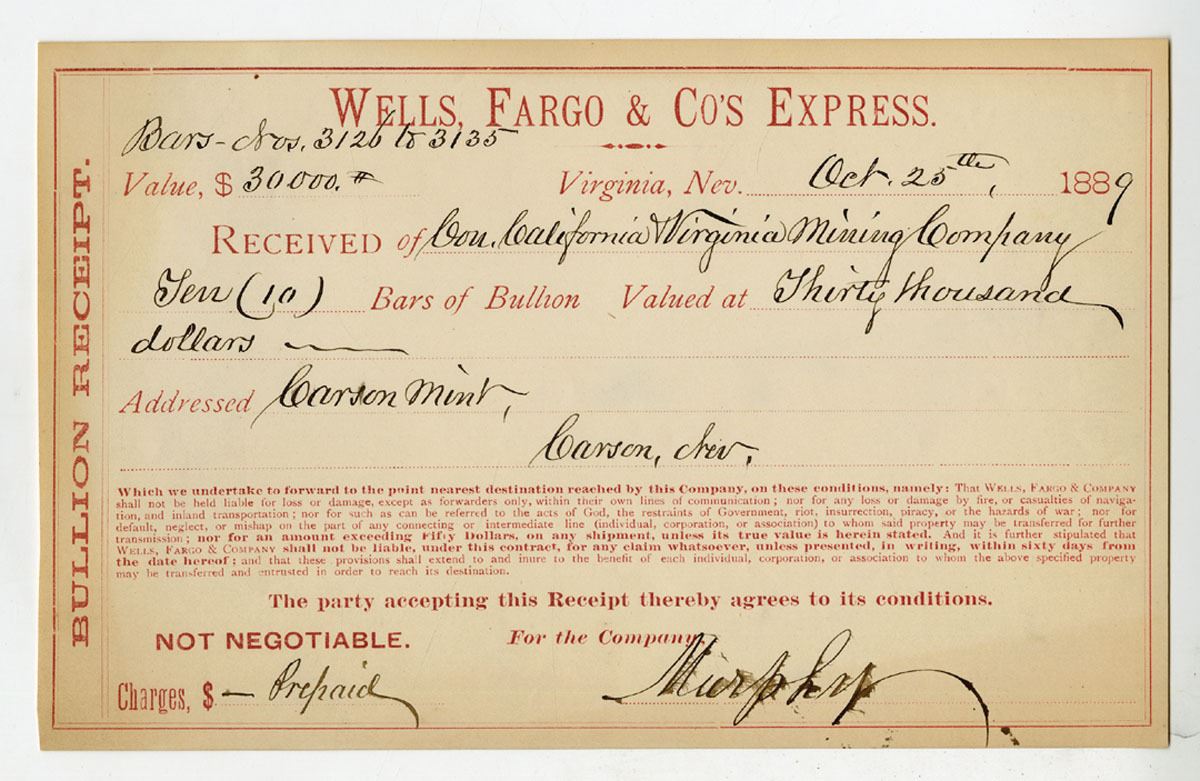 BULLION RECEIPT.
WELLS, FARGO & CO'S EXPRESS.
Bars - Nos. 3126 to 3135
Value, $ 30000.# Virginia, Nev. Oct. 25th, 1889
RECEIVED of Con. California & Virginia Mining Company
Ten (10) Bars of Bullion Valued at Thirty thousand
dollars
Addressed Carson Mint,
Carson, Nev.
Which we undertake to forward to the point nearest destination reached by this Company, on these conditions, namely: That WELLS, FARGO & COMPANY
shall not be held liable for loss or damage, except as forwarders only, within their own lines of communication; nor for any loss or damage by fire, or casualties of naviga-
tion, and inland transportation; nor for such as can be referred to the acts of God, the restraints of Government, riot, insurrection, piracy, or the hazards of war; nor for
default, neglect, or mishap on the part of any connecting or intermediate line (individual, corporation, or association) to whom said property may be transferred for further
transmission; nor for an amount exceeding Fifty Dollars, on any shipment, unless its true value is herein stated. And it is further stipulated that
WELLS, FARGO & COMPANY shall not be liable, under this contract, for any claim whatsoever, unless presented, in writing, within sixty days from
the date hereof; and that these provisions shall extend to and inure to the benefit of each individual, corporation, or association to whom the above specified property
may be transferred and entrusted in order to reach its destination.
The party accepting this Receipt thereby agrees to its conditions.
NOT NEGOTIABLE. For the Company,
Charges, $ - Prepaid Murphy